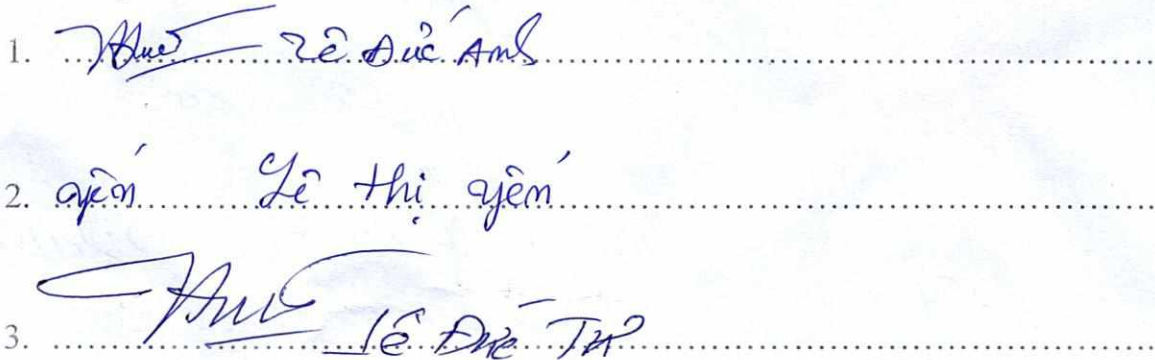 1. Lê Đức Anh
2. yến Lê thị yến
3. Lê Đức